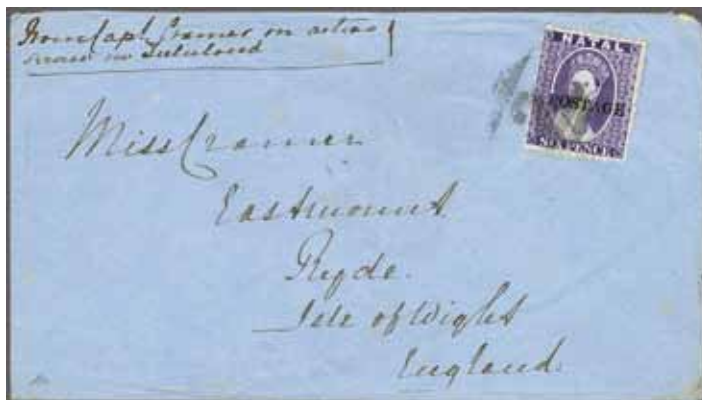 From Capt Cramer on active
service in Zululand
NATAL
POSTAGE
SIX PENCE
Miss Cramer
Eastmount
Ryde.
Isle of Wight
England.